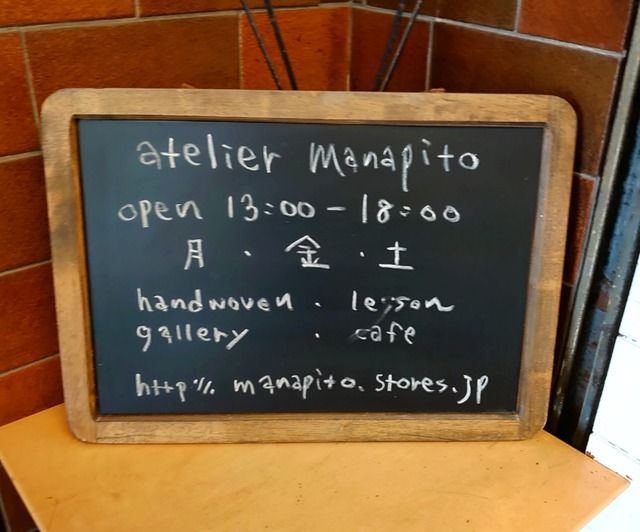 atelier manapito
open 13:00 - 18:00
月 · 金 · 土
handwoven · lesson
gallery · cafe
http://. manapito.stores.jp